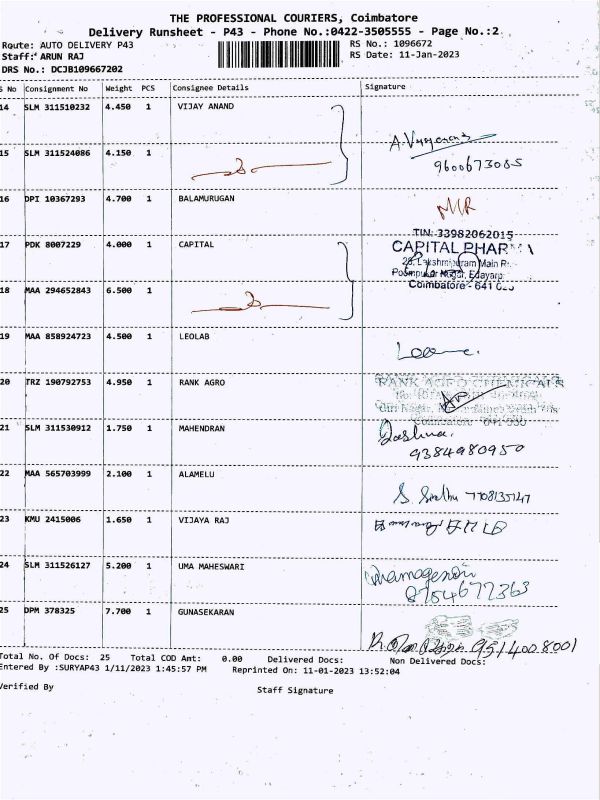 THE PROFESSIONAL COURIERS, Coimbatore
Delivery Runsheet - P43 - Phone No.:0422-3505555 - Page No.:2
Route: AUTO DELIVERY P43 RS No.: 1096672
Staff: ARUN RAJ RS Date: 11-Jan-2023
DRS No.: DCJB109667202
S No Consignment No Weight PCS Consignee Details Signature
14 SLM 311510232 4.450 1 VIJAY ANAND
A. Vijayanand
15 SLM 311524086 4.150 1
9600673085
16 DPI 10367293 4.700 1 BALAMURUGAN
TIN: 33982062015
17 PDK 8007229 4.000 1 CAPITAL CAPITAL PHAR
28, Lakshmipuram Main R
Poompukar Nagar, Edayarp
18 MAA 294652843 6.500 1 Coimbatore - 641
19 MAA 858924723 4.500 1 LEOLAB
20 TRZ 190792753 4.950 1 RANK AGRO RANK AGRO CHEMICALS
Coimbatore
21 SLM 311530912 1.750 1 MAHENDRAN
9384980950
22 MAA 565703999 2.100 1 ALAMELU
23 KMU 2415006 1.650 1 VIJAYA RAJ
24 SLM 311526127 5.200 1 UMA MAHESWARI
8754677363
25 DPM 378325 7.700 1 GUNASEKARAN
9514008001
Total No. Of Docs: 25 Total COD Amt: 0.00 Delivered Docs: Non Delivered Docs:
Entered By :SURYAP43 1/11/2023 1:45:57 PM Reprinted On: 11-01-2023 13:52:04
Verified By Staff Signature